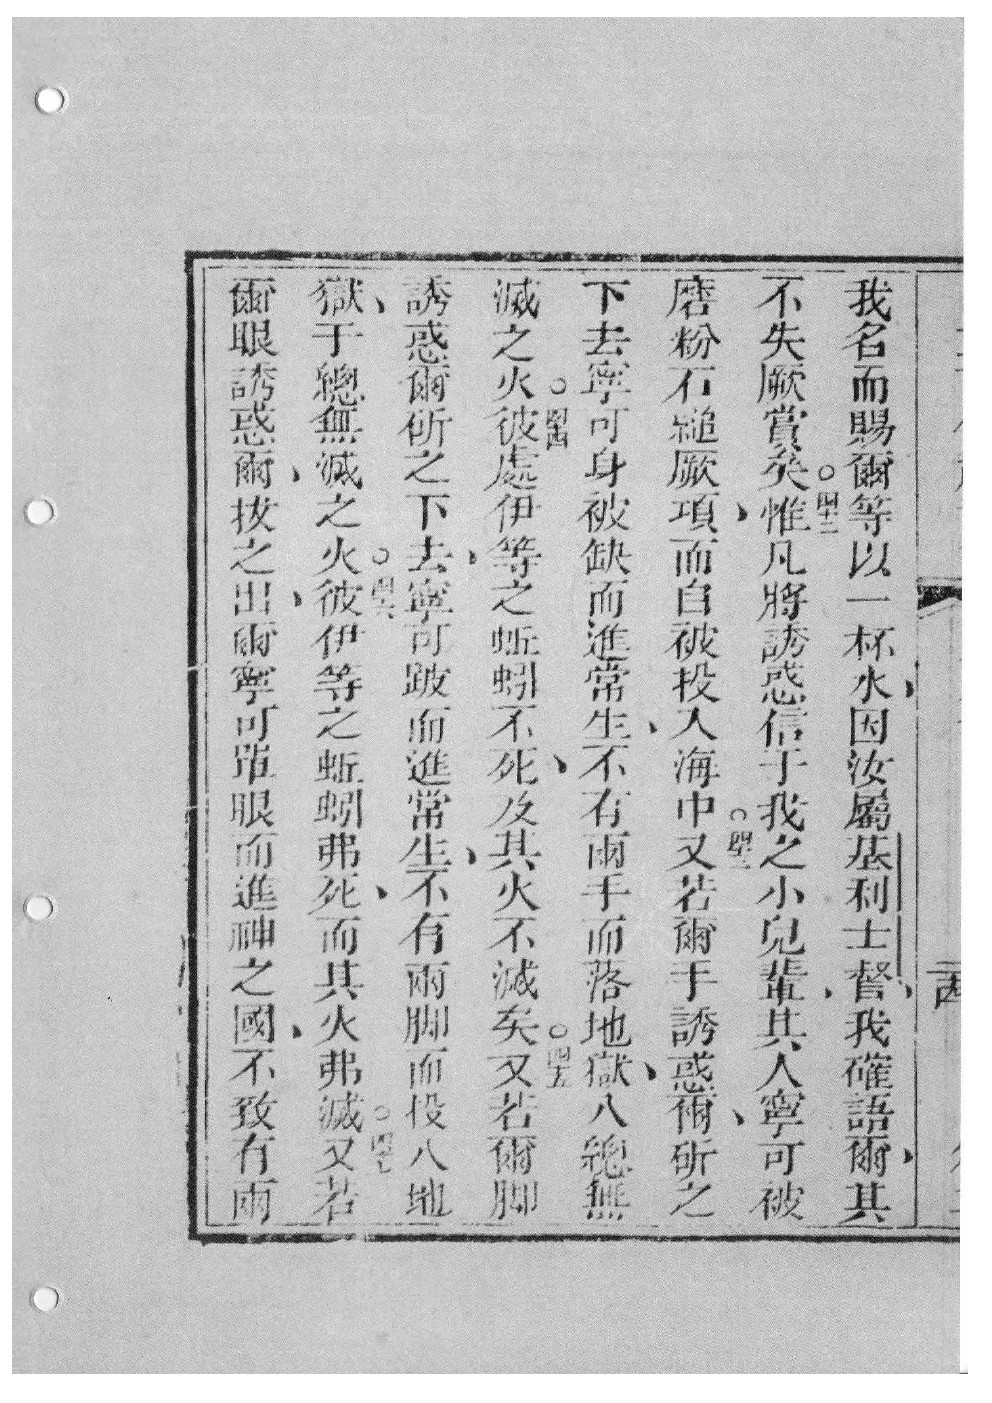 我名而賜爾等以一杯水、因汝屬基利士督、我確語爾、其
不失厥賞矣○四十二惟凡將誘惑信于我之小兒輩、其人寧可被
磨粉石縋厥項、而自被投入海中○四十三又若爾手誘惑爾、斫之
下去寧可身被缺而進常生、不有兩手而落地獄、八總無
滅之火○四十四彼處伊等之蚯蚓不死、及其火不滅矣○四十五又若爾脚
誘惑爾斫之下去、寧可跛而進常生、不有兩脚而投八地
獄、于總無滅之火○四十六彼伊等之蚯蚓弗死、而其火弗滅○四十七又若
爾眼誘惑爾、拔之出、爾寧可單眼而進神之國、不致有兩